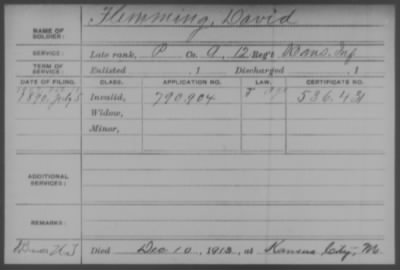 Flemming, David
NAME OF SOLDIER:
SERVICE: Late rank, P Co. A, 12 Reg't Kans. Inf
TERM OF SERVICE: Enlisted , 1 Discharged , 1
DATE OF FILING. CLASS. APPLICATION NO. LAW. CERTIFICATE NO.
1890, July 5 Invalid, 790.904
Widow,
Minor,
ADDITIONAL SERVICES:
REMARKS:
Died Dec 10, 1913, at Kansas City, Mo.